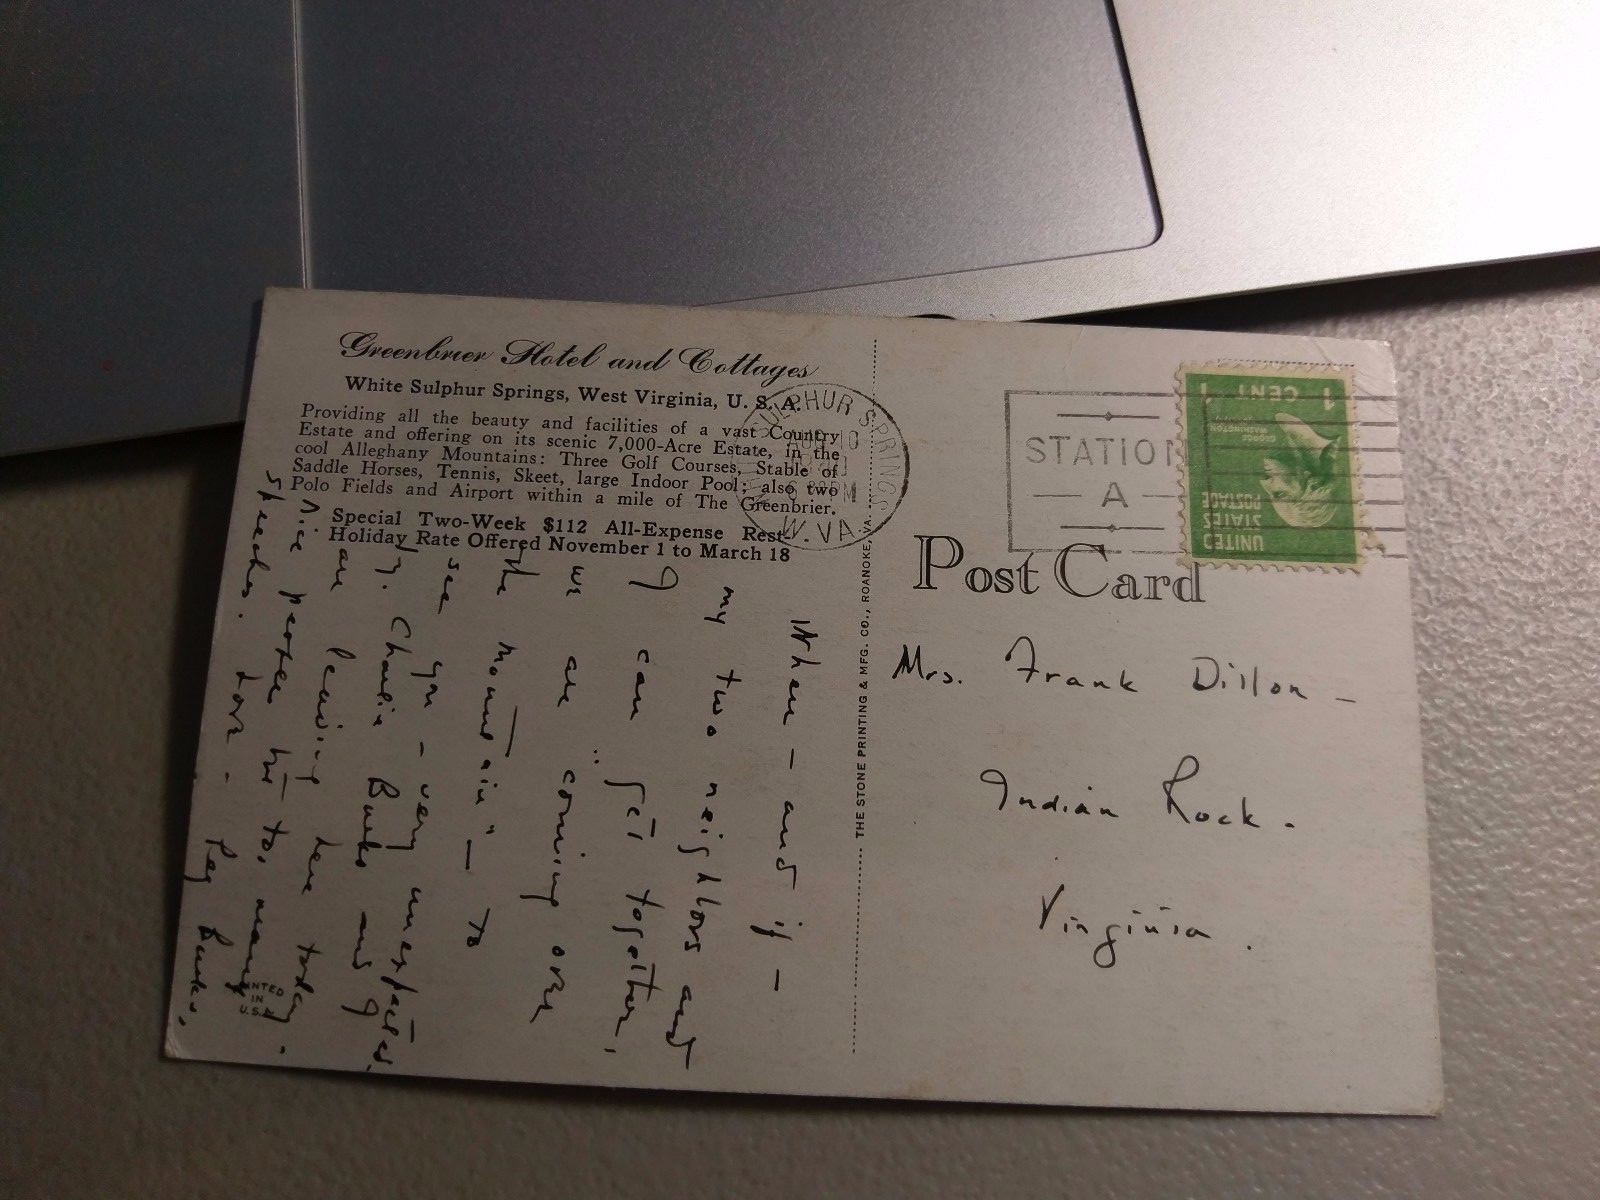 Greenbrier Hotel and Cottages
White Sulphur Springs, West Virginia, U. S. A.
Providing all the beauty and facilities of a vast Country
Estate and offering on its scenic 7,000-Acre Estate, in the
cool Alleghany Mountains: Three Golf Courses, Stable of
Saddle Horses, Tennis, Skeet, large Indoor Pool; also two
Polo Fields and Airport within a mile of The Greenbrier.
Special Two-Week $112 All-Expense Rest-
Holiday Rate Offered November 1 to March 18
When - and if -
my two neighbors and
I can get together,
we are coming over
"the mountain" - to
see you - very unexpected.
Charlie Burks and I
are leaving here today.
Nice party but too many
speeches. Love -
Peg Burks.
PRINTED
IN
U.S.A.
THE STONE PRINTING & MFG. CO., ROANOKE, VA.
SULPHUR SPRINGS
AUG 10
PM
W. VA.
STATION
A
UNITED
STATES
POSTAGE
GEORGE
WASHINGTON
1 CENT 1
Post Card
Mrs. Frank Dillon -
Indian Rock.
Virginia.